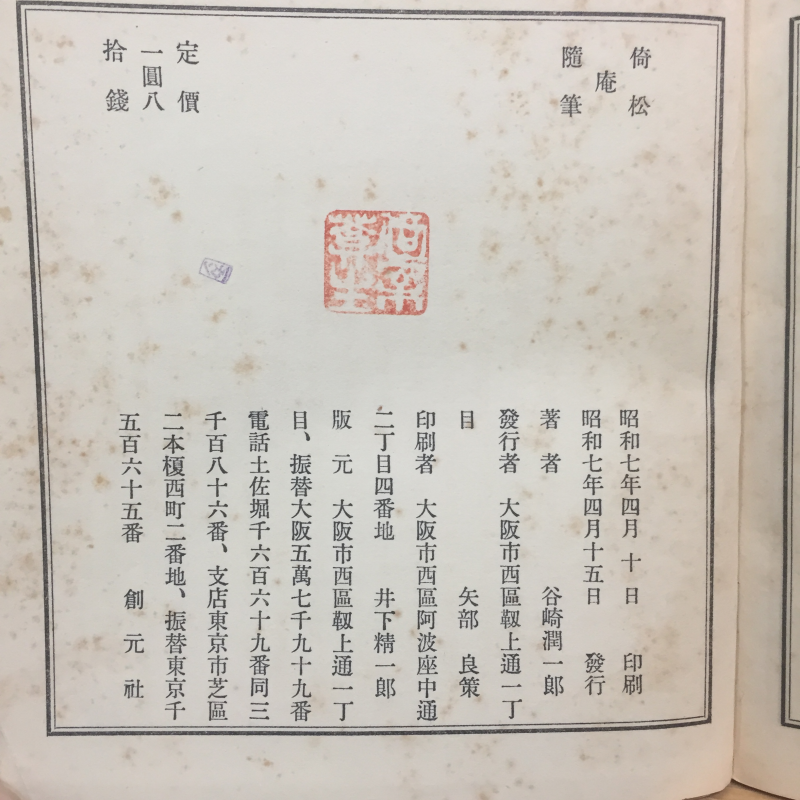 倚松
庵
隨筆
定價
一圓八
拾錢
昭和七年四月十日 印刷
昭和七年四月十五日 發行
著者 谷崎潤一郎
發行者 大阪市西區靱上通一丁
目 矢部良策
印刷者 大阪市西區阿波座中通
二丁目四番地 井下精一郎
版元 大阪市西區靱上通一丁
目、振替大阪五萬七千九十九番
電話土佐堀千六百六十九番同三
千百八十六番、支店東京市芝區
二本榎西町二番地、振替東京千
五百六十五番 創元社